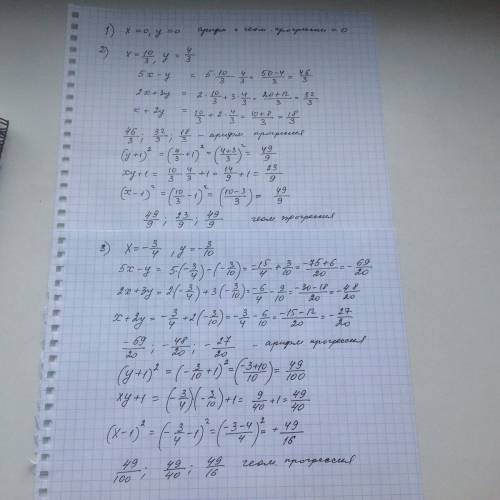 1) x=0, y=0 арифм + геом. прогрессии = 0
2) x=10/3, y=4/3
5x-y = 5·10/3 - 4/3 = 50-4/3 = 46/3
2x+3y = 2·10/3+3·4/3 = 20+12/3 = 32/3
x+2y = 10/3+2·4/3 = 10+8/3 = 18/3
46/3; 32/3; 18/3 - арифм прогрессия
(y+1)² = (4/3+1)² = (4+3/3)² = 49/9
xy+1 = 10/3·4/3+1 = 14/9+1 = 23/9
(x-1)² = (10/3-1)² = (10-3/3)² = 49/9
49/9; 23/9; 49/9 геом прогрессия
3) x=-3/4, y=-3/10
5x-y = 5·(-3/4)-(-3/10) = -15/4+3/10 = -75+6/20 = -69/20
2x+3y = 2(-3/4)+3(-3/10) = -6/4-9/10 = -30-18/20 = -48/20
x+2y = -3/4+2(-3/10) = -3/4-6/10 = -15-12/20 = -27/20
-69/20; -48/20; -27/20 - арифм прогрессия
(y+1)² = (-3/10+1)² = (-3+10/10)² = 49/100
xy+1 = (-3/4)(-3/10)+1 = 9/40+1 = 49/40
(x-1)² = (-3/4-1)² = (-3-4/4)² = +49/16
49/100; 49/40; 49/16 геом прогрессия